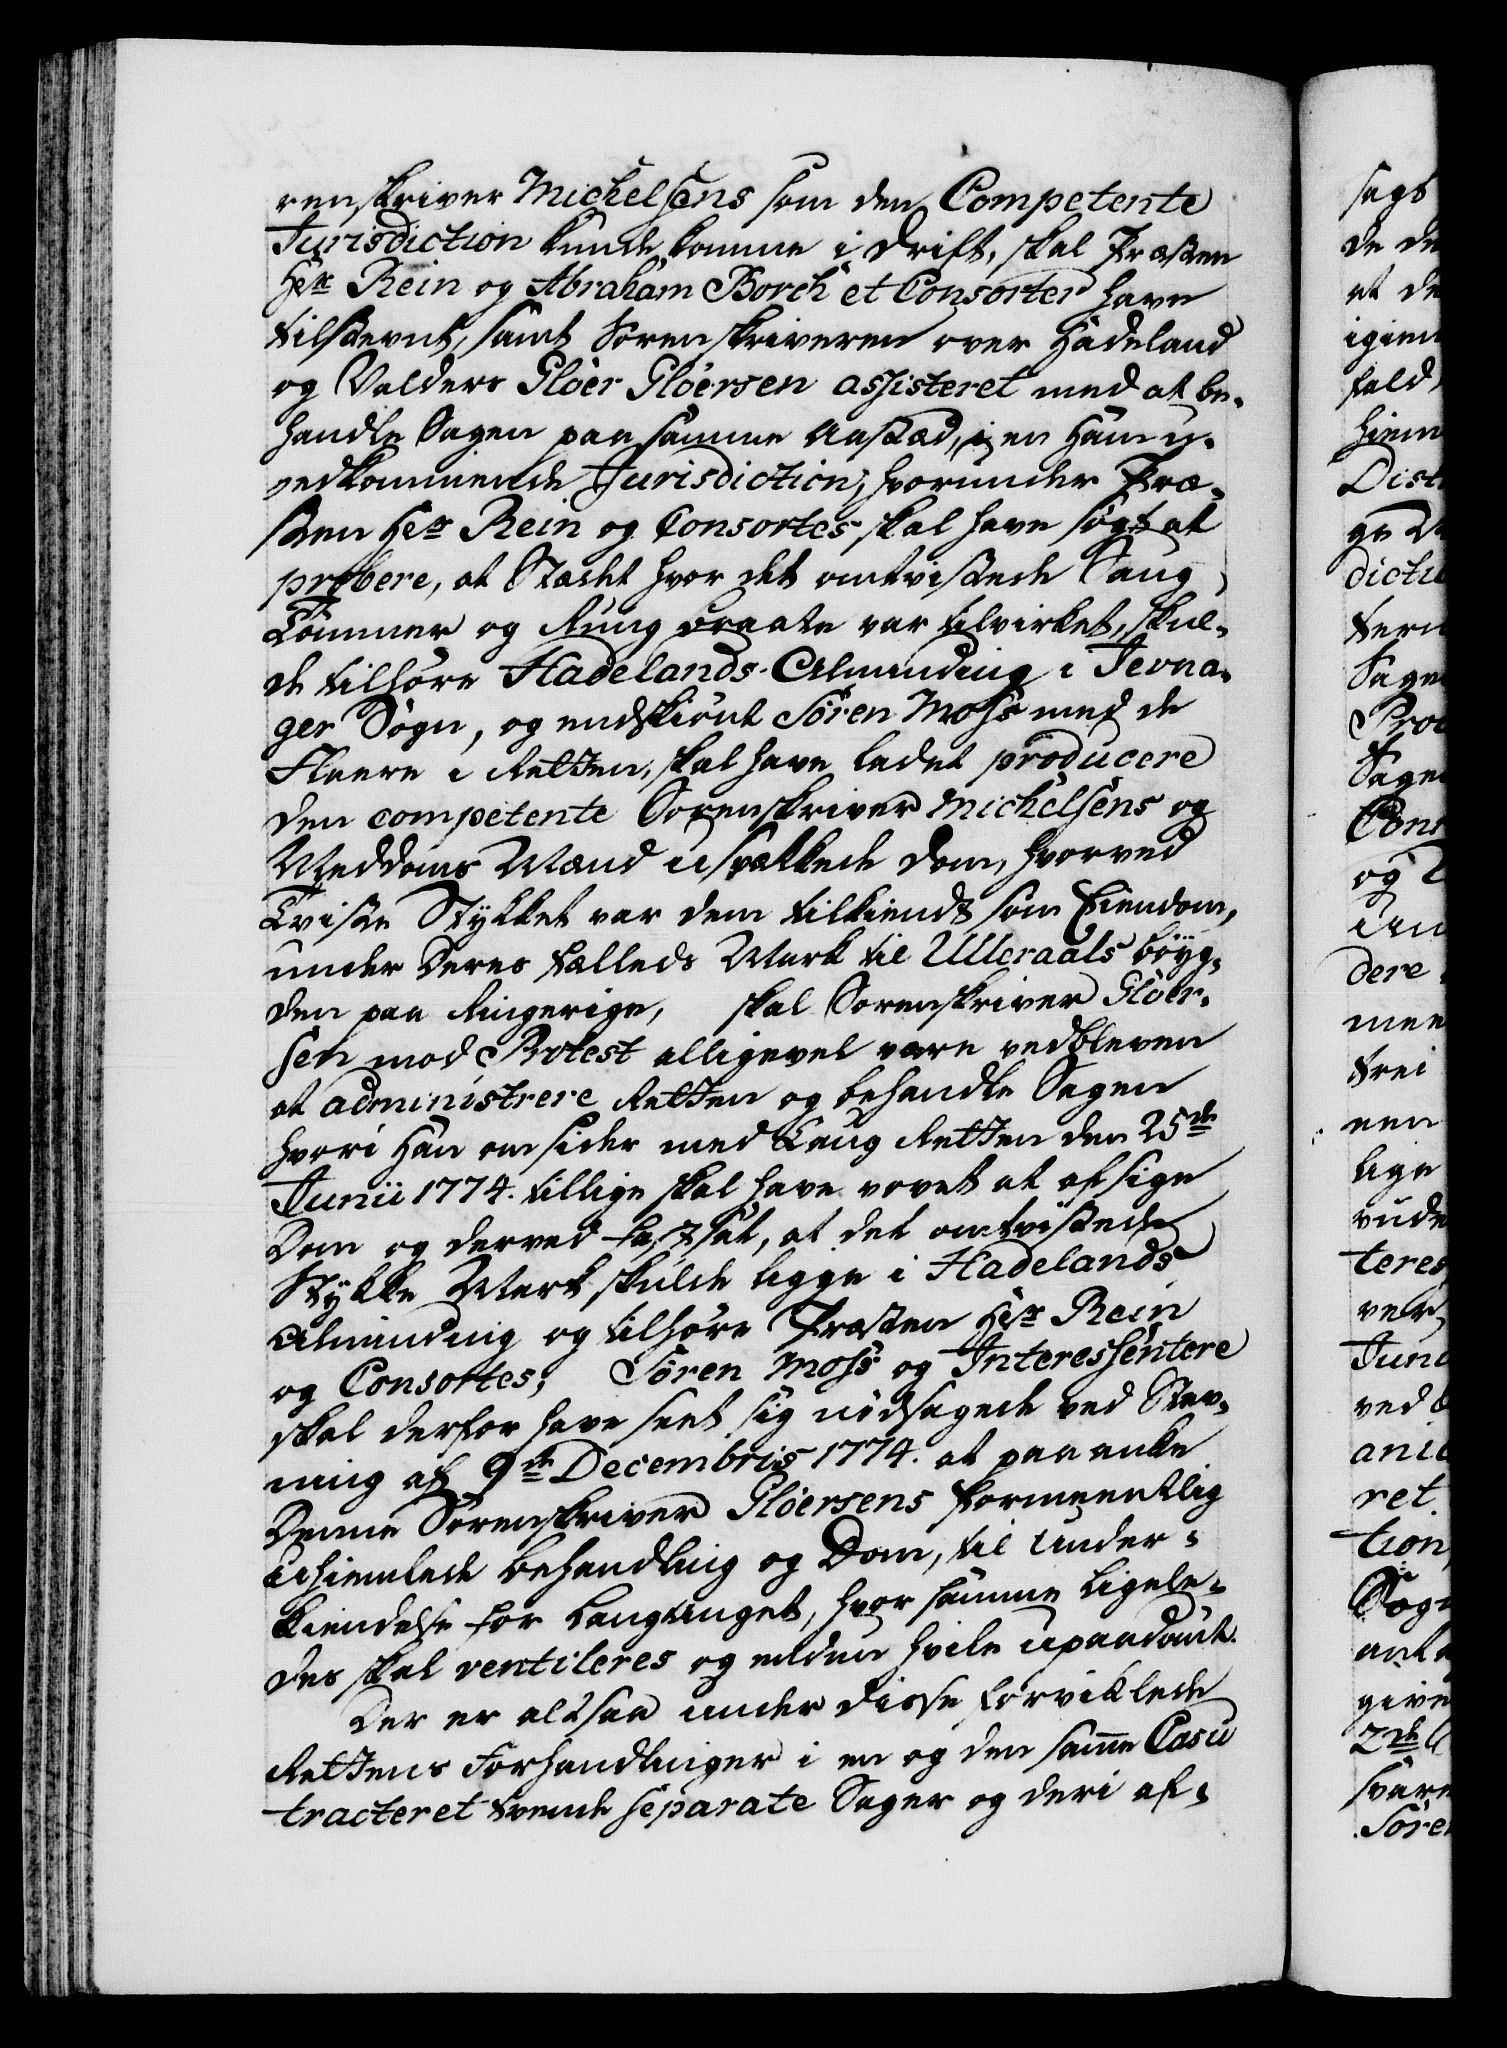 renskriver Michelsens som den Competente
Jurisdiction kunde komme i drift, skal Præsten
Hr Rein og Abraham Borch et Consorter have
tilstevnt, samt Sorenskriveren over Hadeland
og Valders Glöer Glöersen assisteret med at be-
handle Sagen paa samme Aastæd, i en ham u-
vedkommende Jurisdiction, hvorunder Præ-
sten Hr Rein og Consortes skal have søgt at
probere, at Stædet hvor det omtvistede Saug
Tømmer og var tilvirket, skul-
de tilhøre Hadelands Alminding i Jevna-
ger Sogn, og endskiønt Sören Moss med de
Fleere i Retten, skal have ladet producere
den competente Sorenskriver Michelsens og
Meddoms Mænd usvækkede Dom, hvorved
Tviste Stykket var dem tilkiendt som Eiendom,
under deres Fælleds Mark til Ulleraals böyg-
den paa Ringerige, skal Sorenskriver Glöer-
sen mod Protest alligevel være vedbleven
at administrere Retten og behandle Sagen
hvori han omsider med Laug Retten den 25de
Junii 1774. tillige skal have vovet at afsige
Dom og derved fastsat, at det omtvistede
Stykke Mark skulde ligge i Hadelands
Alminding og tilhøre Præsten Hr Rein
og Consortes; Sören Moss og Interessentere
skal derfor have seet sig nødsagede ved Stev-
ning af 9de Decembris 1774. at paaanke
denne Sorenskriver Glöersens formeentlig
uhiemlede behandling og Dom, til Under-
kiendelse for Laugtinget, hvor samme ligele-
des skal ventileres og endnu hvile upaadømt.
Der er altsaa under disse forviklede
Rettens Forhandlinger i en og den samme Casu
tracteret tvende separate Sager og deri af-